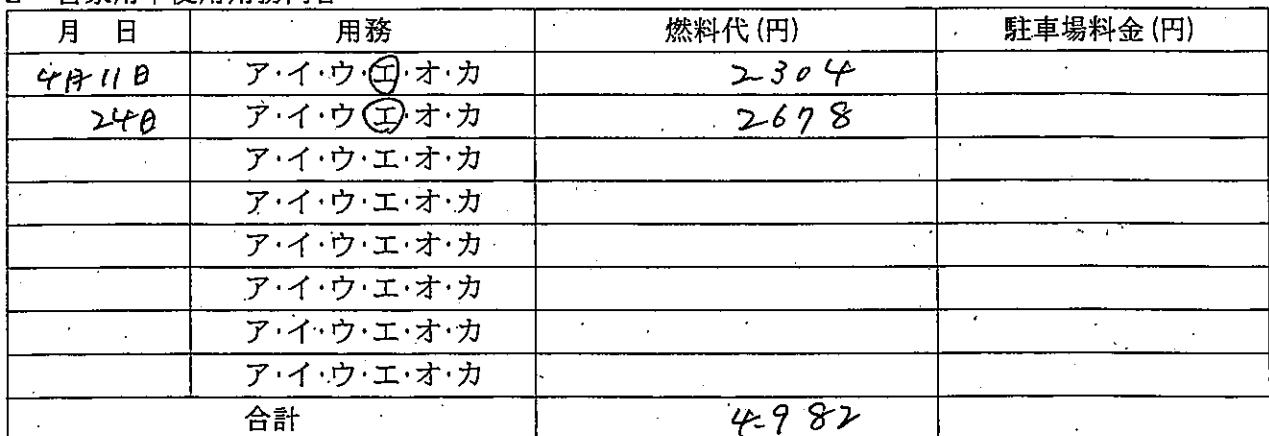 月 日 用務 燃料代(円) 駐車場料金(円)
4月11日 ア・イ・ウ・エ・オ・カ 2304
24日 ア・イ・ウ・エ・オ・カ 2678
ア・イ・ウ・エ・オ・カ
ア・イ・ウ・エ・オ・カ
ア・イ・ウ・エ・オ・カ
ア・イ・ウ・エ・オ・カ
ア・イ・ウ・エ・オ・カ
ア・イ・ウ・エ・オ・カ
合計 4982